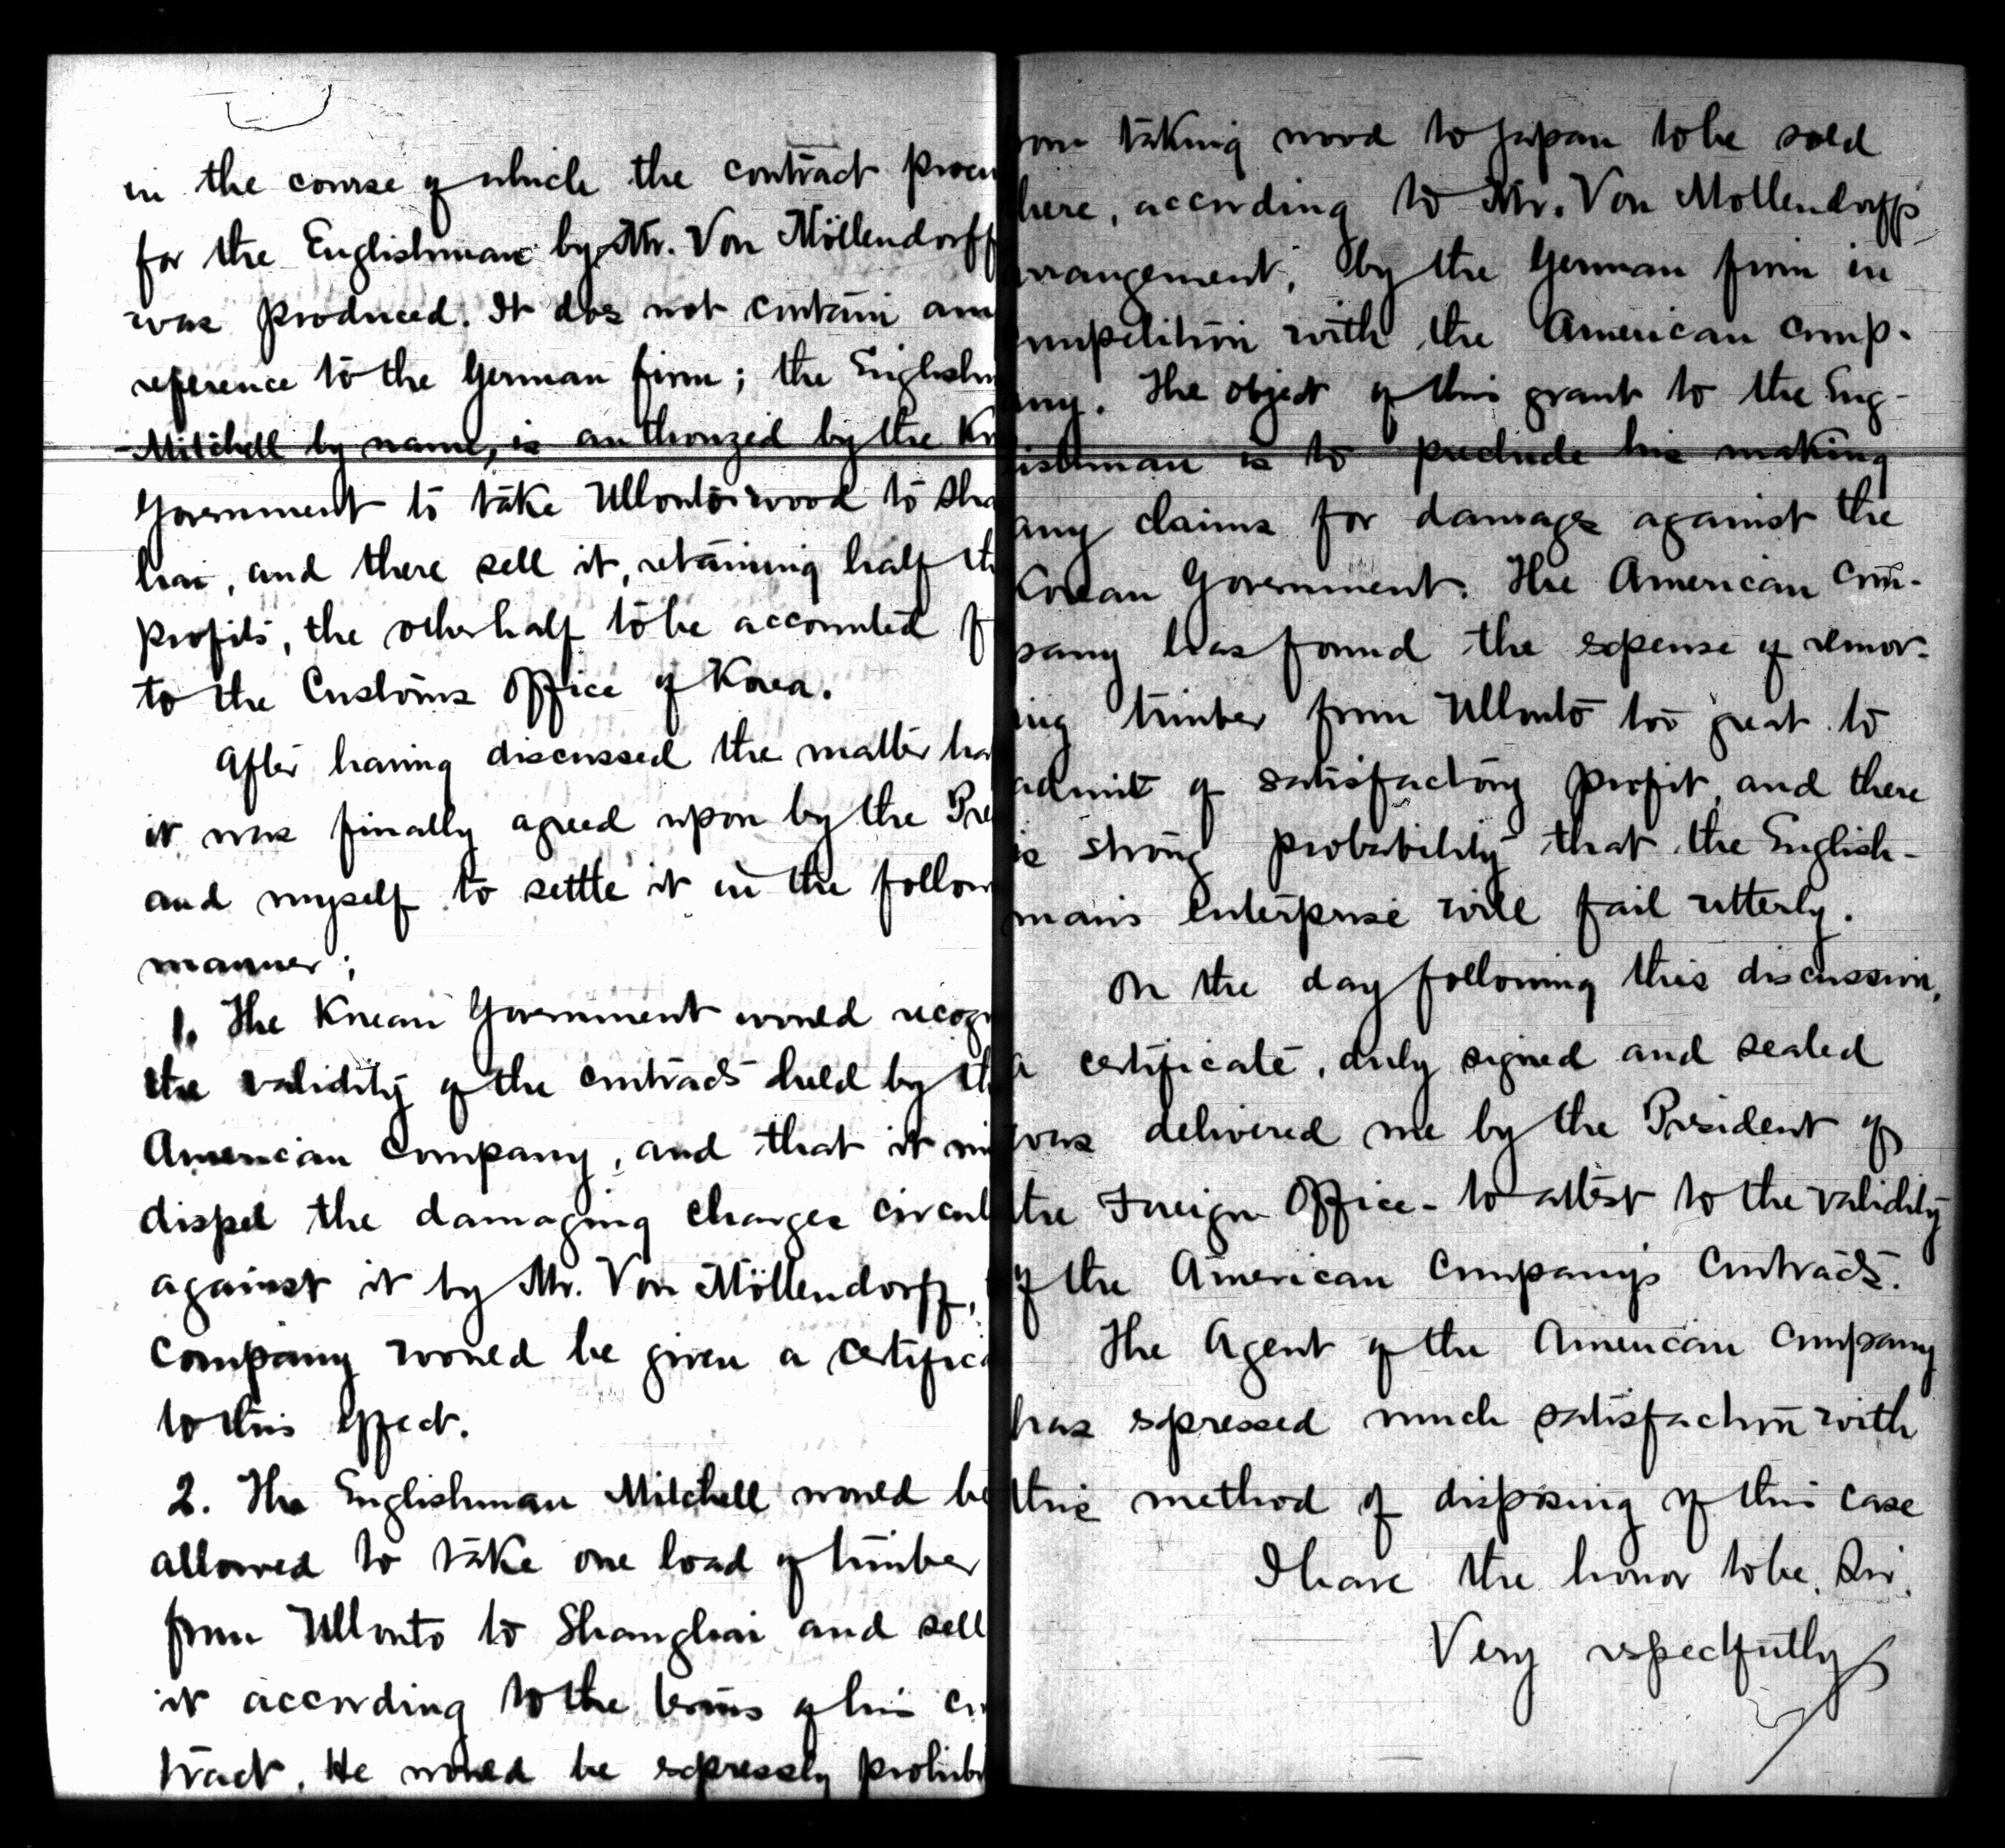 in the course of which the contract procu
for the Englishman by Mr. Von Möllendorff
was produced. It does not contain any
reference to the German firm; the Englishm
Mitchell by name, is authorized by the Ko
Government to take Ullonto wood to Sha
hai, and there sell it, retaining half th
profits, the other half to be accounted f
to the Customs Office of Korea.
After having discussed the matter ha
it was finally agreed upon by the Pre
and myself to settle it in the follow
manner;
1. The Korean Government would recog
the validity of the contracts held by th
American Company, and that it mi
dispel the damaging charges circul
against it by Mr. Von Möllendorff,
Company would be given a certifica
to this effect.
2. The Englishman Mitchell would be
allowed to take one load of timber
from Ullonto to Shanghai and sell
it according to the terms of his con
tract. He would be expressly prohibi
rom taking wood to Japan to be sold
here, according to Mr. Von Mollendorff's
rrangement, by the German firm in
ompetition with the American Comp-
any. The object of this grant to the Eng-
lishman is to preclude his making
any claims for damages against the
Korean Government. The American Com-
pany has found the expense of remov-
ing timber from Ullonto too great to
admit of satisfactory profit, and there
is strong probability that the English-
man's enterprise will fail utterly.
On the day following this discussion,
a certificate, duly signed and sealed
was delivered me by the President of
the Foreign Office - to attest to the validity
of the American Company's Contracts.
The Agent of the American Company
has expressed much satisfaction with
this method of disposing of this case
I have the honor to be, Sir,
Very respectfully